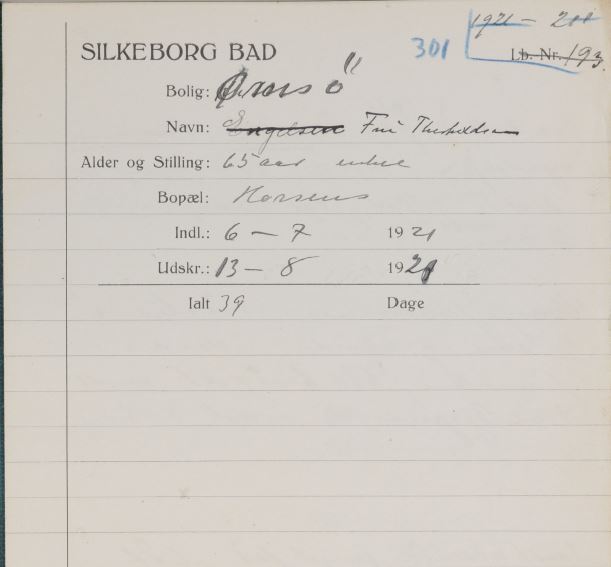 1921 - 200
SILKEBORG BAD 301 Lb. Nr. 193
Bolig: Ørnsö
Navn: Engelsen Fru
Alder og Stilling: 65 aar enke
Bopæl: Horsens
Indl.: 6 - 7 1921
Udskr.: 13 - 8 1921
Ialt 39 Dage